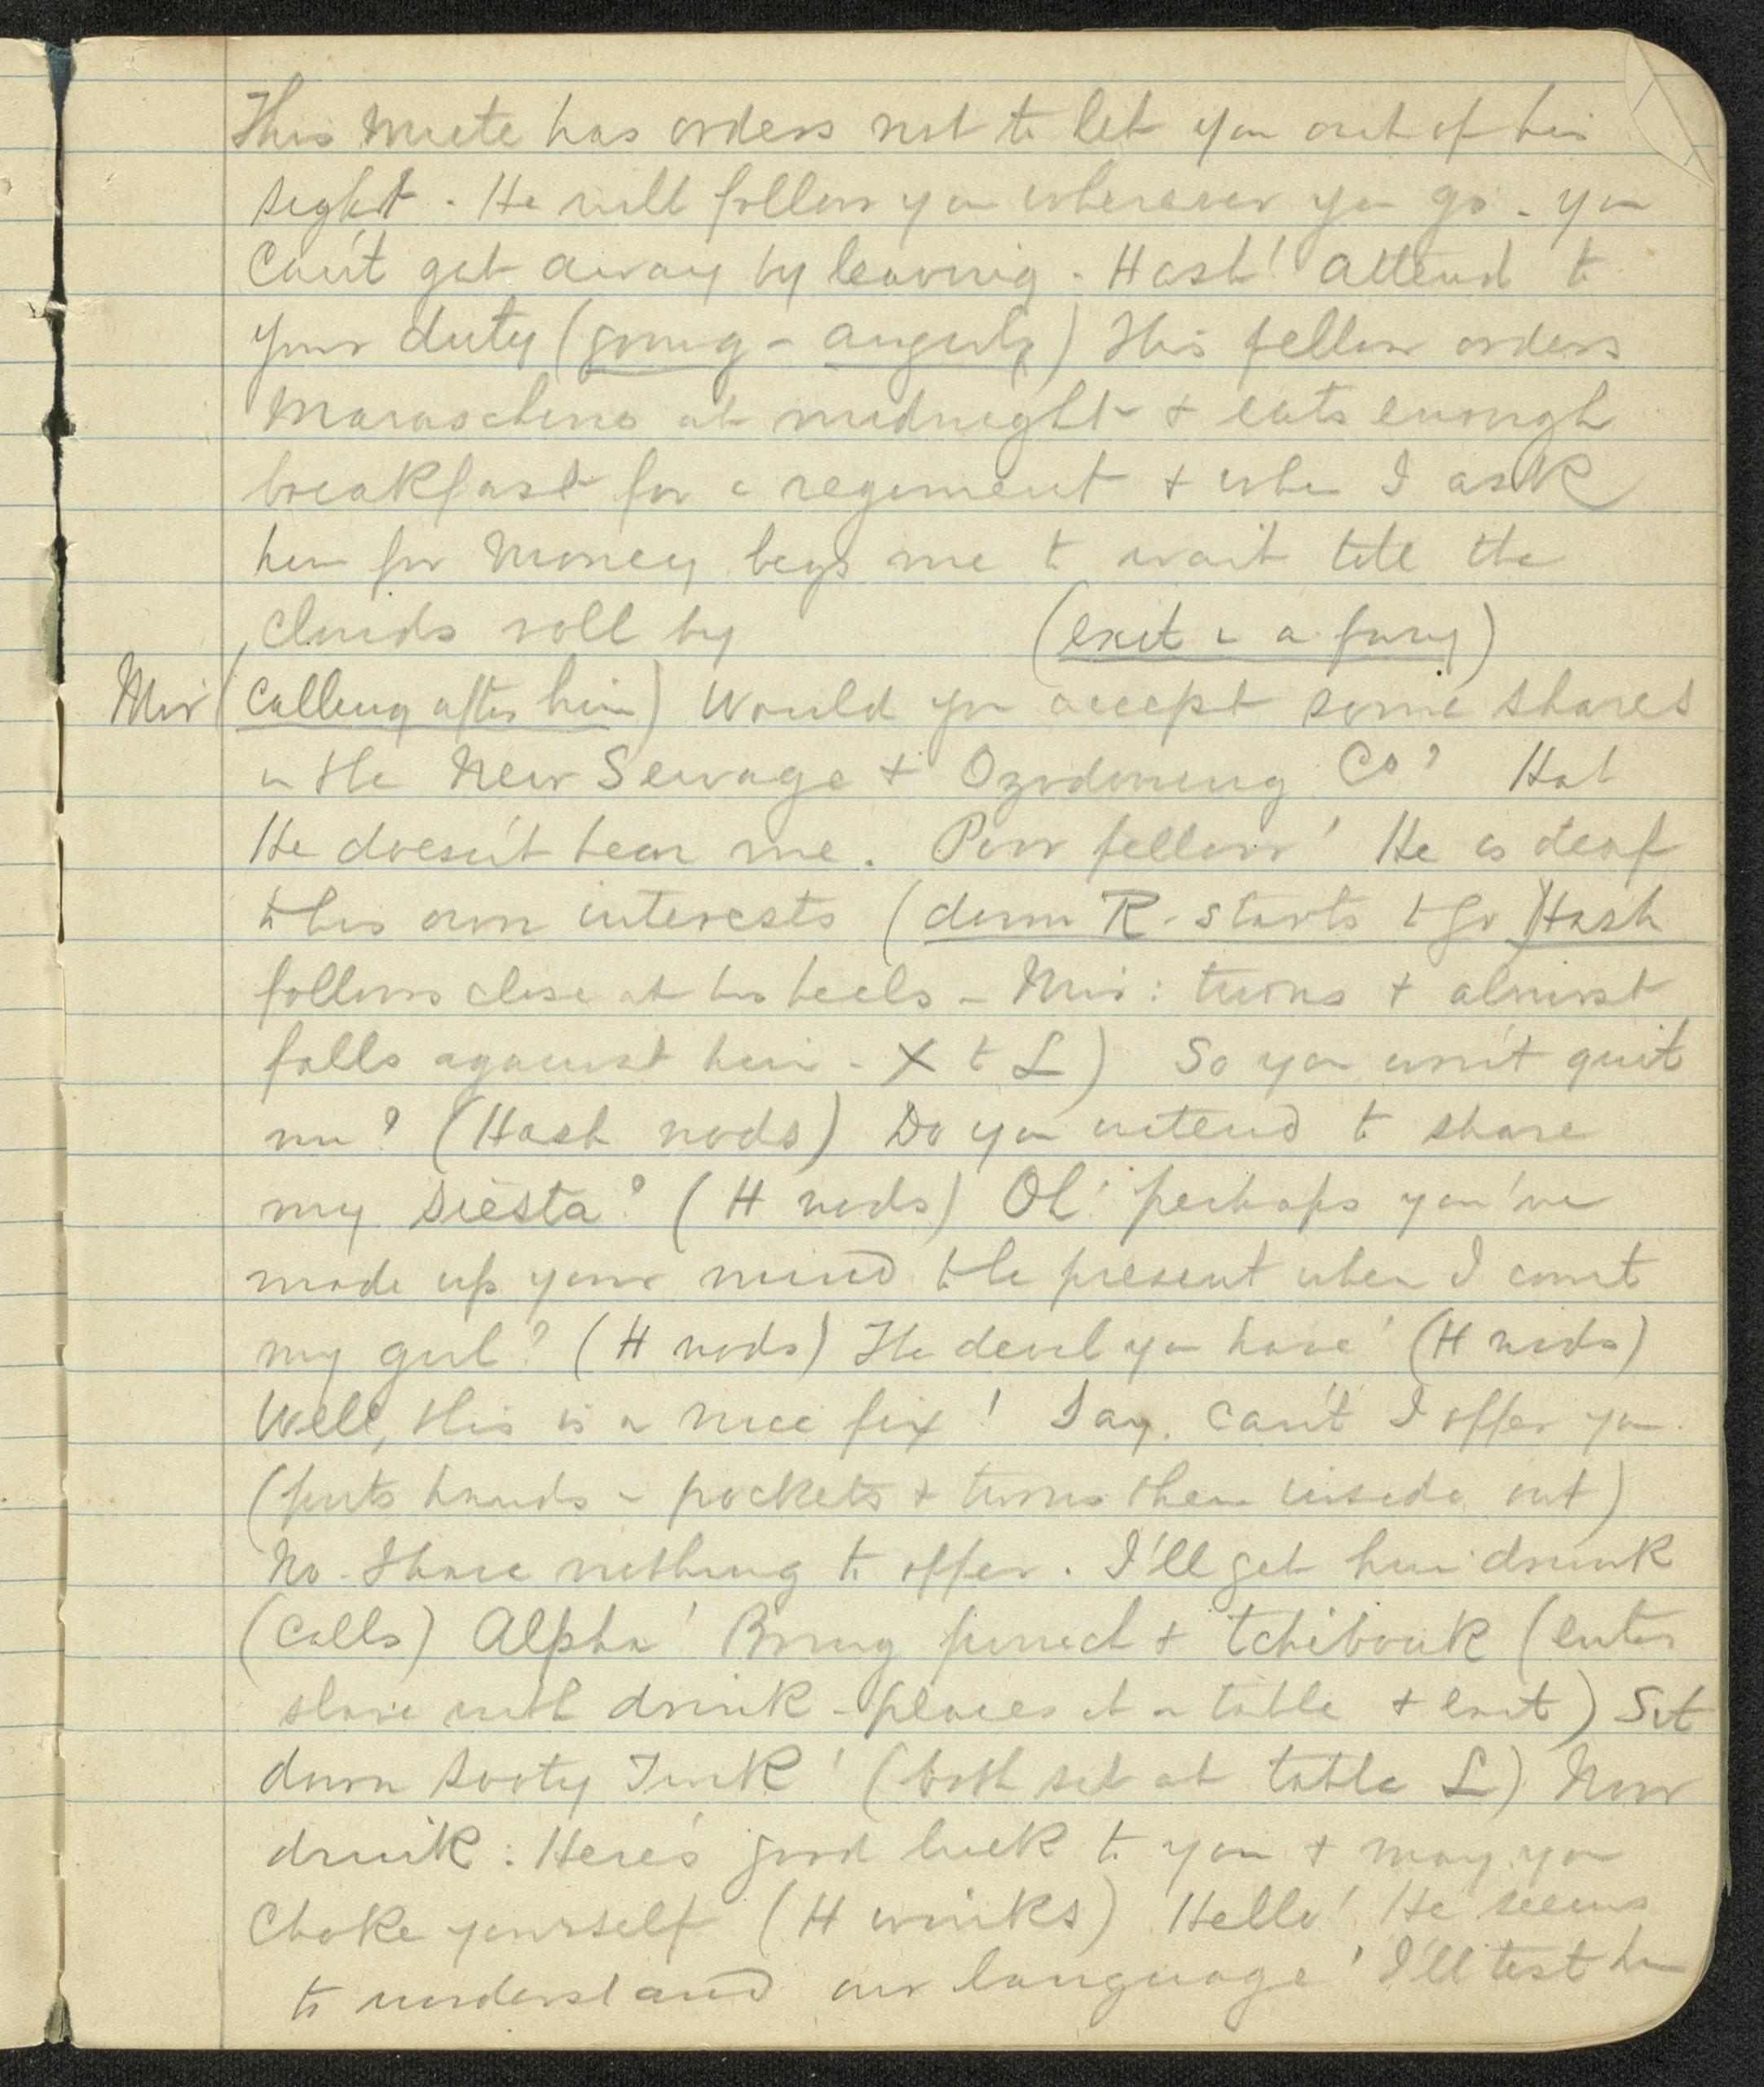 This Mute has orders not to let you out of his
sight. He will follow you wherever you go - you
can't get away by leaving. Hash! attend to
your duty (going - angrily) This fellow orders
Maraschino at midnight & eats enough
breakfast for a regiment & when I ask
him for money begs me to wait till the
clouds roll by (exit in a fury)
Mir (calling after him) Would you accept some shares
in the New Sewage & Co? Ha!
He doesn't hear me. Poor fellow! He is deaf
to his own interests (down R - starts to go) (Hash
follows close at his heels - Mir: turns & almost
falls against him - X to L) So you won't quit
me? (Hash nods) Do you intend to share
my siesta? (H nods) Oh! perhaps you've
made up your mind to be present when I court
my girl? (H nods) The devil you have! (H nods)
Well, this is a nice fix! Say, can't I offer you.
(puts hands in pockets & turns them inside out)
No. I have nothing to offer. I'll get him drunk
(calls) Alpha! Bring punch & tchibouk (enter
slave with drink - places it on table & exit) Sit
down sooty Turk! (both sit at table L) Now
drink: Here's good luck to you & may you
choke yourself (H winks) Hello! He seems
to understand our language! I'll test him